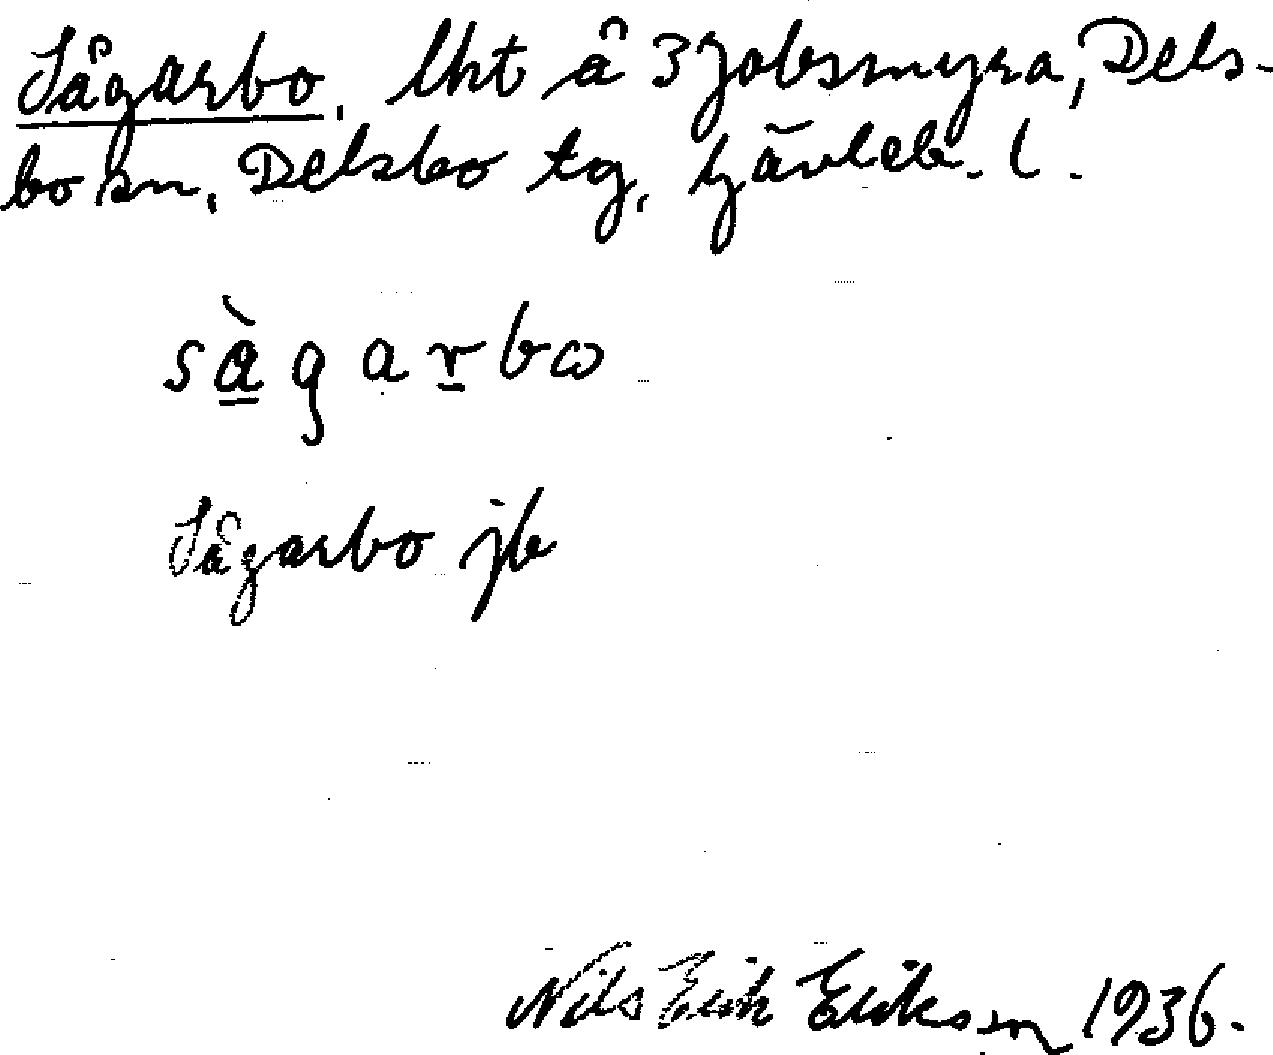 Sågarbo, lht å 3 Jobsmyra, Dels-
bo sn, Delsbo tg, Gävleb. l.
sàgarbω
Sågarbo jb
Nils Erik Erikson 1936.